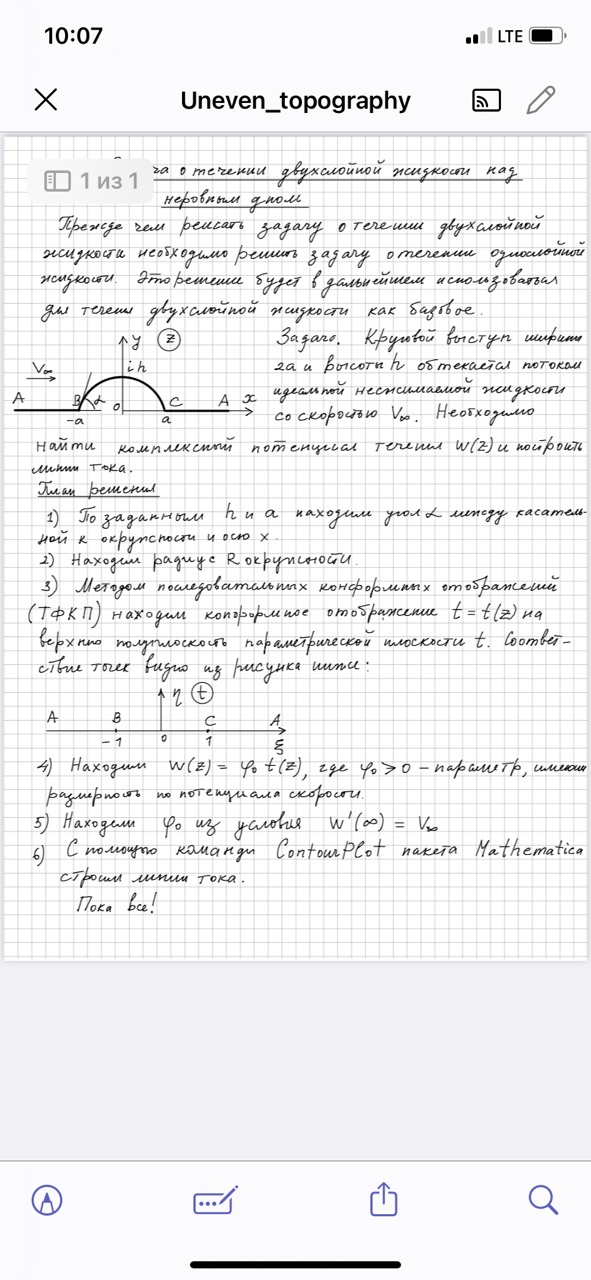 10:07
LTE
Uneven_topography
1 из 1
о течении двухслойной жидкости над
неровным дном
Прежде чем решать задачу о течении двухслойной
жидкости необходимо решить задачу о течении однослойной
жидкости. Это решение будет в дальнейшем использоваться
для течения двухслойной жидкости как базовое.
y z
ih
V∞
A B α 0 C A x
-a a
Задача. Круговой выступ ширины
2a и высоты h обтекается потоком
идеальной несжимаемой жидкости
со скоростью V∞. Необходимо
найти комплексный потенциал течения W(z) и построить
линии тока.
План решения
1) По заданным h и a находим угол α между касатель-
ной к окружности и осью x.
2) Находим радиус R окружности.
3) Методом последовательных конформных отображений
(ТФКП) находим конформное отображение t = t(z) на
верхнюю полуплоскость параметрической плоскости t. Соответ-
ствие точек видно из рисунка ниже:
η t
A B C A
-1 0 1 ξ
4) Находим W(z) = φ₀ t(z), где φ₀ > 0 – параметр, имеющий
размерность потенциала скорости.
5) Находим φ₀ из условия W'(∞) = V∞
6) С помощью команды ContourPlot пакета Mathematica
строим линии тока.
Пока все!